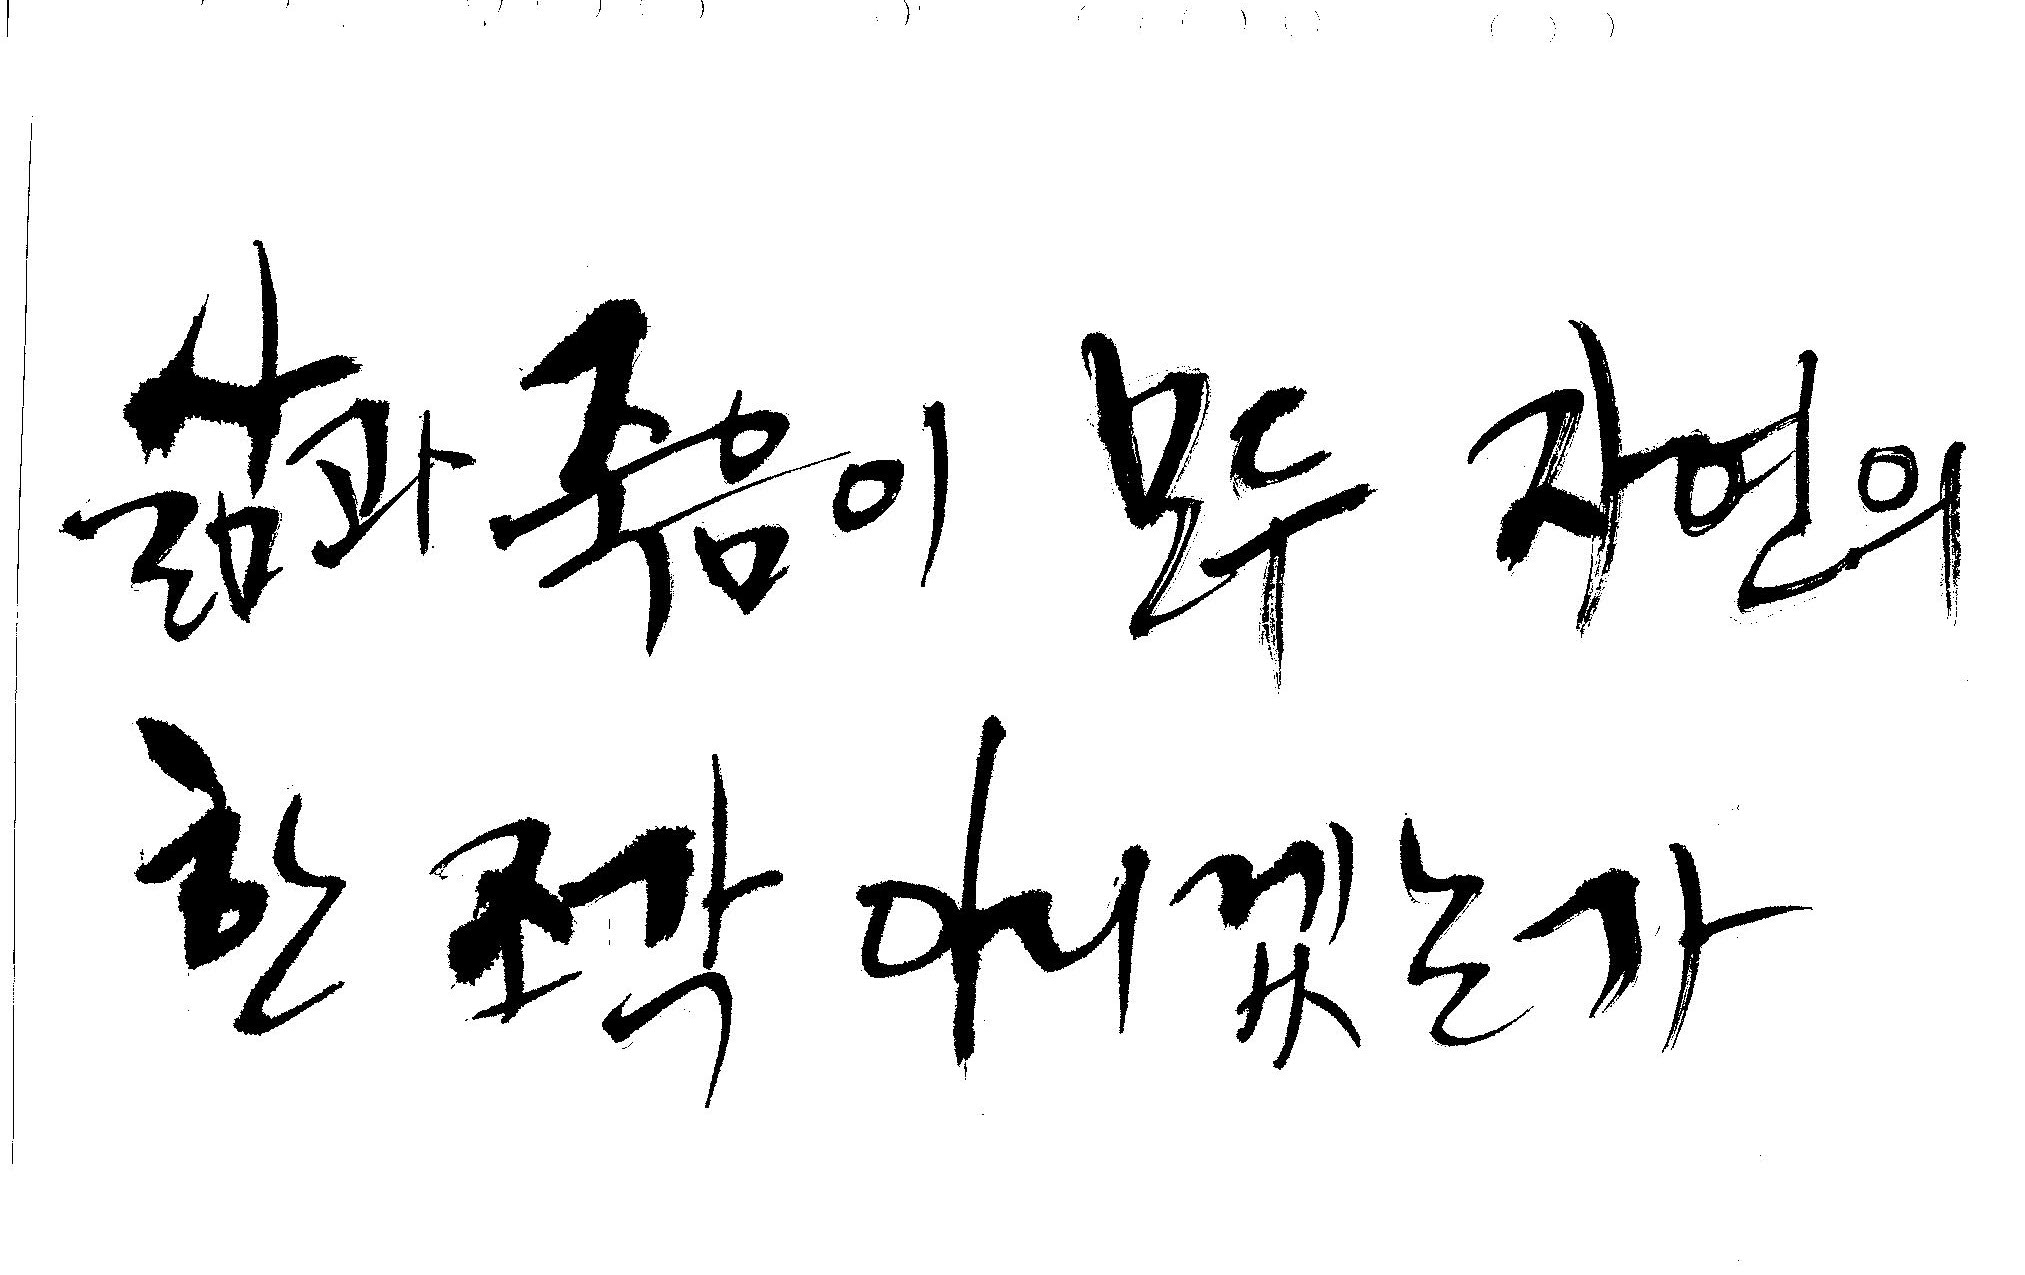 삶과 죽음이 모두 자연의
한 조각 아니겠는가